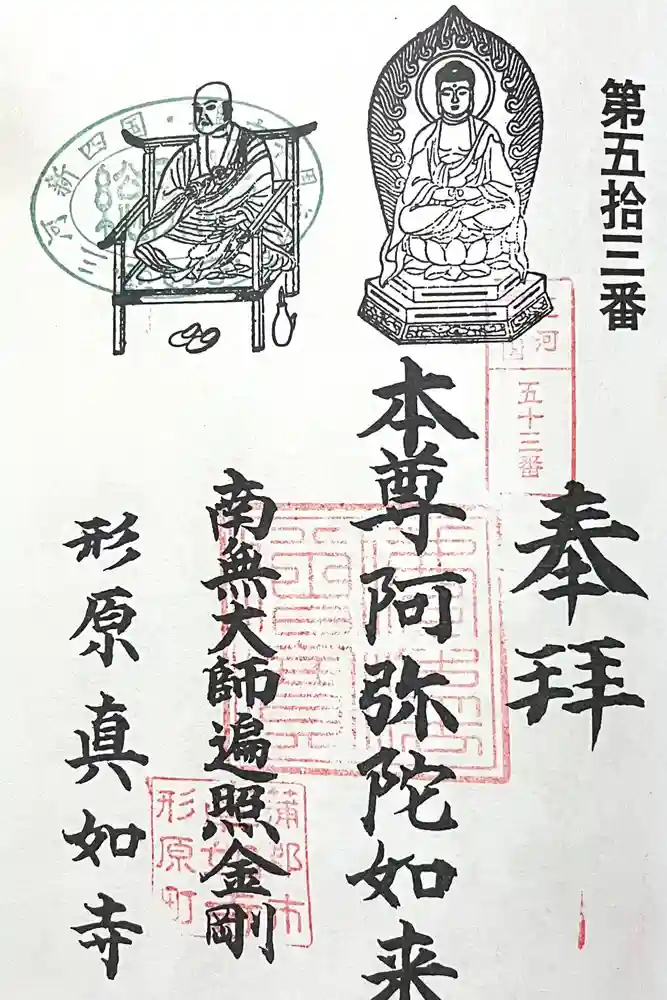 第五拾三番
奉拝
河
五十三番
本尊阿弥陀如来
南無大師遍照金剛
蒲郡市
形原町
形原真如寺
三河新四国